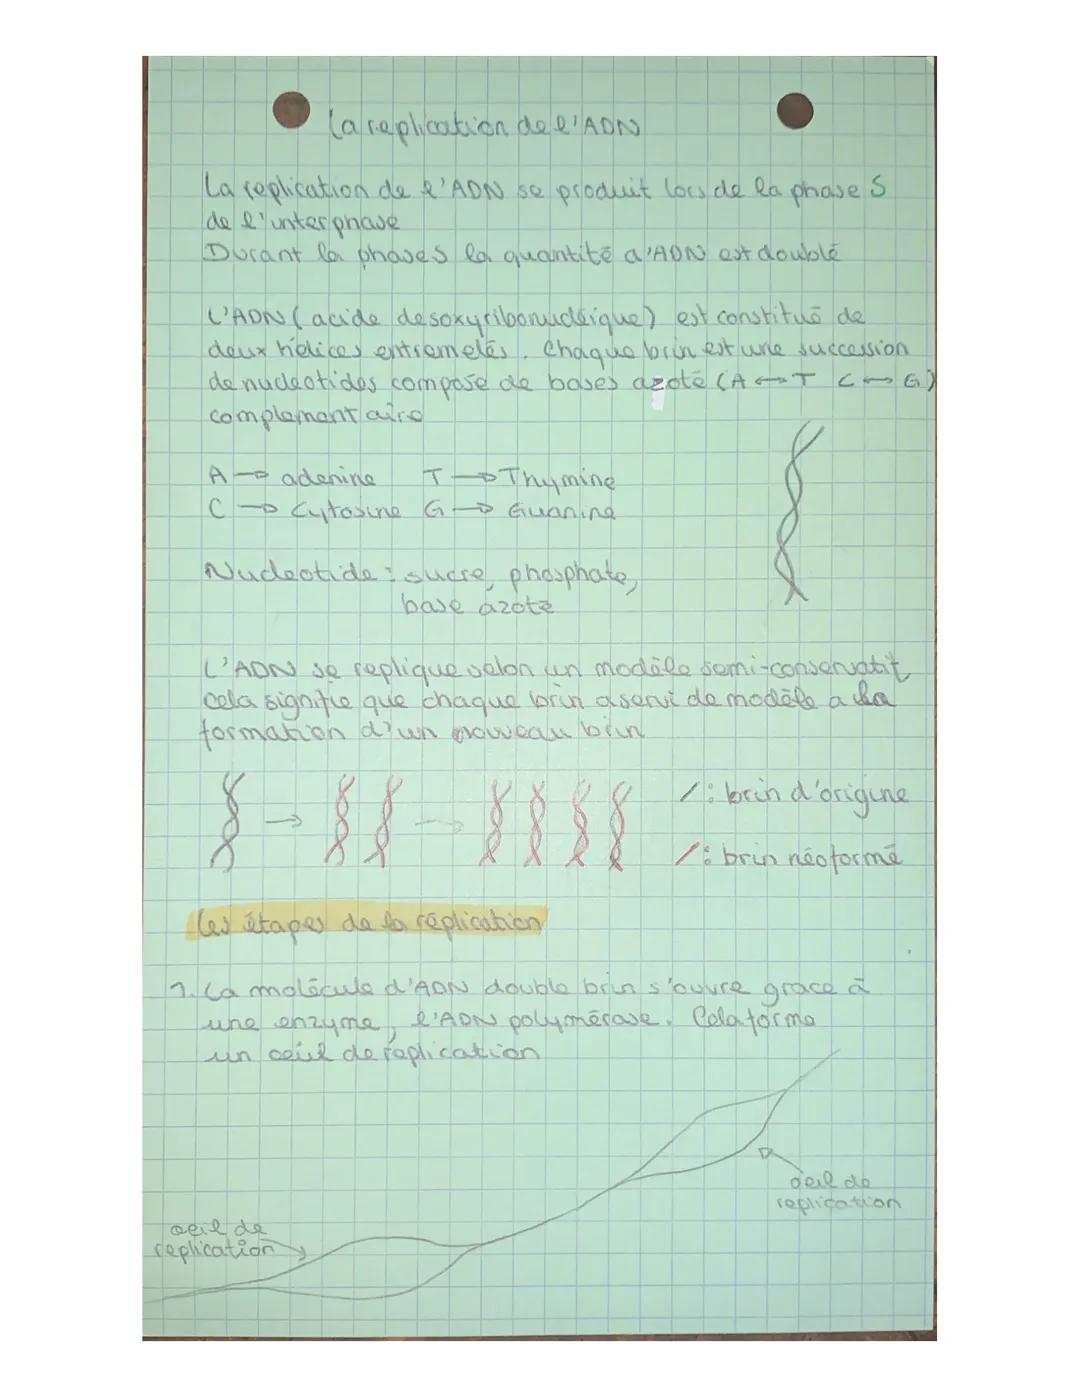 La replication de l'ADN
La replication de l'ADN se produit lors de la phase S
de l'interphase
Durant la phase S la quantité d'ADN est doublé
L'ADN (acide desoxyribonucléique) est constitué de
deux hélices entremelés. Chaque brin est une succession
de nucleotides compose de bases azoté (A ↔ T C ↔ G)
complementaire
A → adenine T → Thymine
C → Cytosine G → Guanine
Nucleotide : sucre, phosphate,
base azoté
L'ADN se replique selon un modèle semi-conservatif,
cela signifie que chaque brin a servi de modèle a la
formation d'un nouveau brin
/ : brin d'origine
/ : brin néoformé
Les étapes de la réplication
1. La molécule d'ADN double brin s'ouvre grace à
une enzyme, l'ADN polymérase. Cela forme
un oeil de réplication
oeil de
replication
oeil de
replication